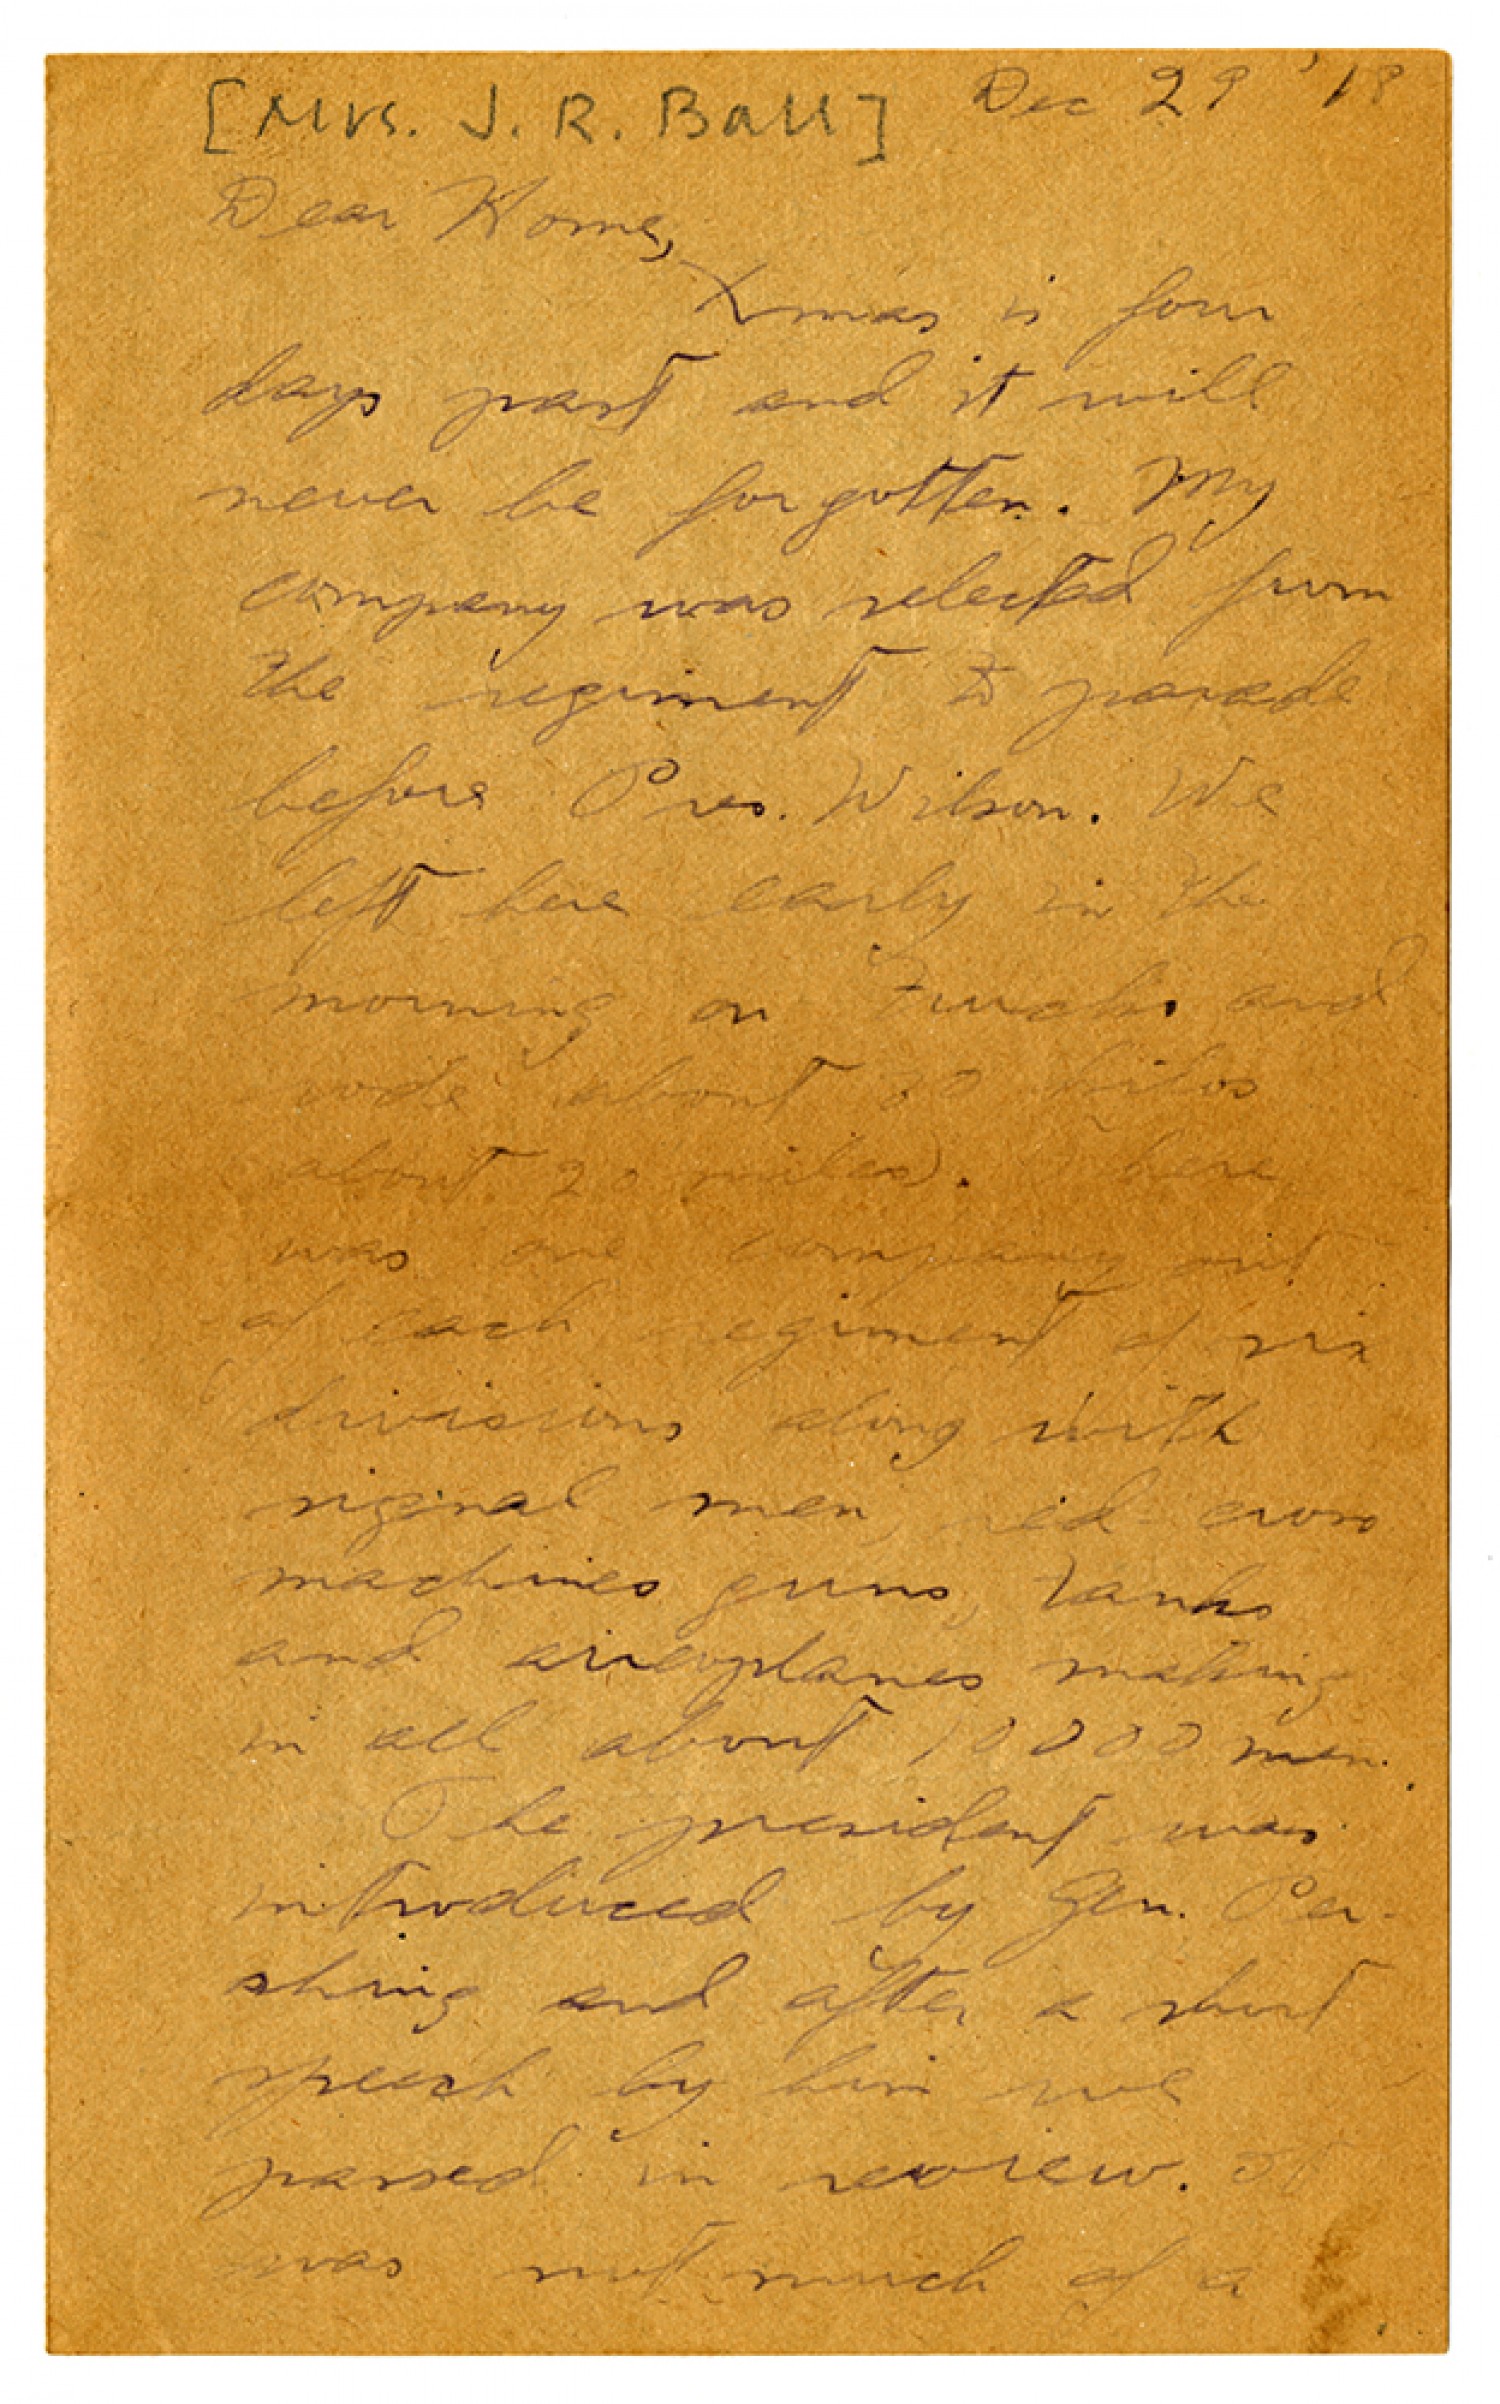 [Mrs. J. R. Ball] Dec 29 '18
Dear Home,
Xmas is four
days past and it will
never be forgotten. My
company was selected from
the regiment to parade
before Pres. Wilson. We
left here early in the
morning on trucks and
rode about 30 kilos
about 20 miles). There
was one company out
of each regiment of six
divisions along with
signal men, red cross
machines guns, tanks
and aireoplanes making
in all about 10000 men.
The president was
introduced by Gen. Per-
shing and after a short
speech by him we
passed in review. It
was not much of a